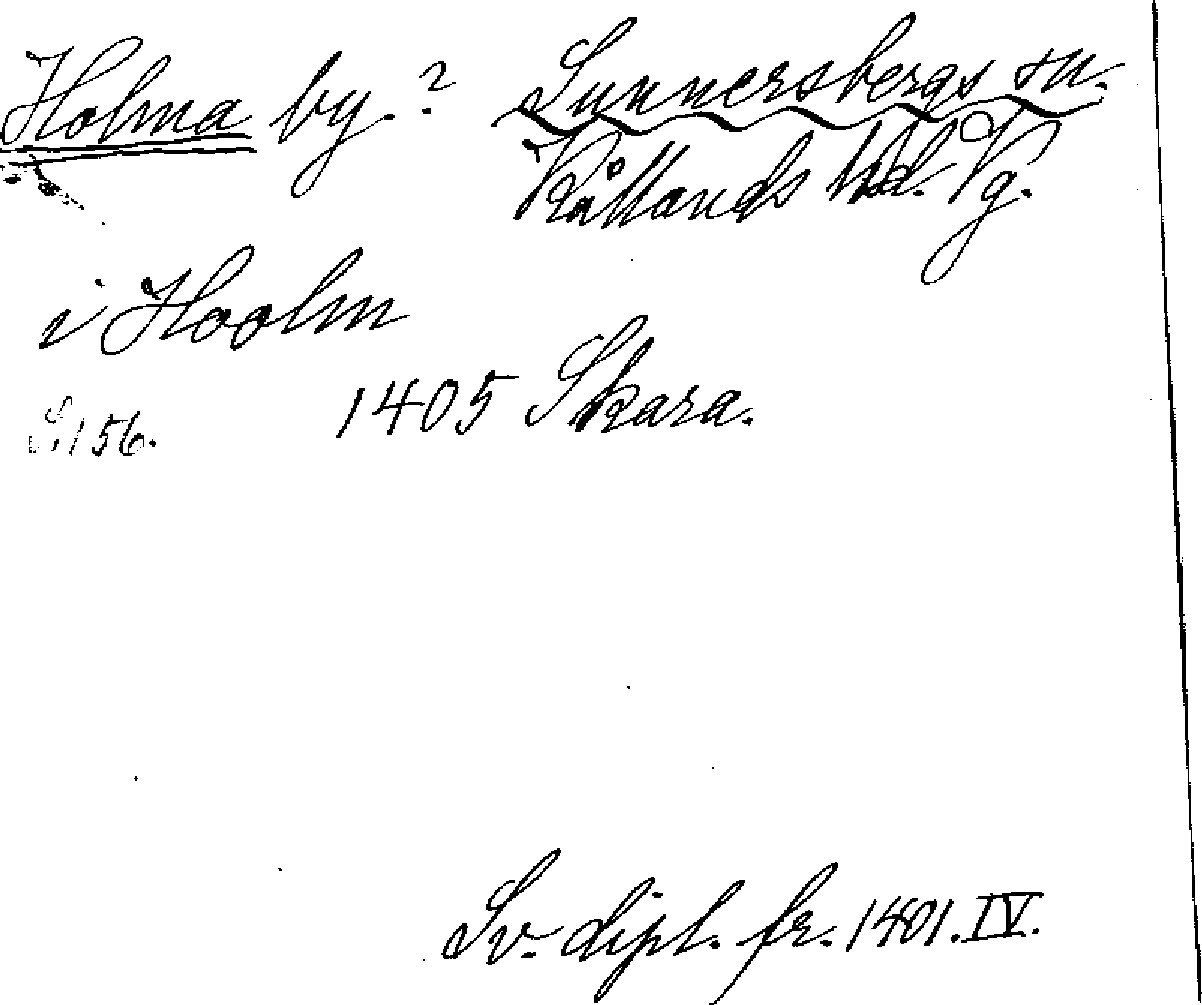 Holma by.? Sunnersbergs sn.
Kållands hd. Vg.
i Hoolm
1405 Skara.
S. 156.
Sv. dipl. fr. 1401. IV.